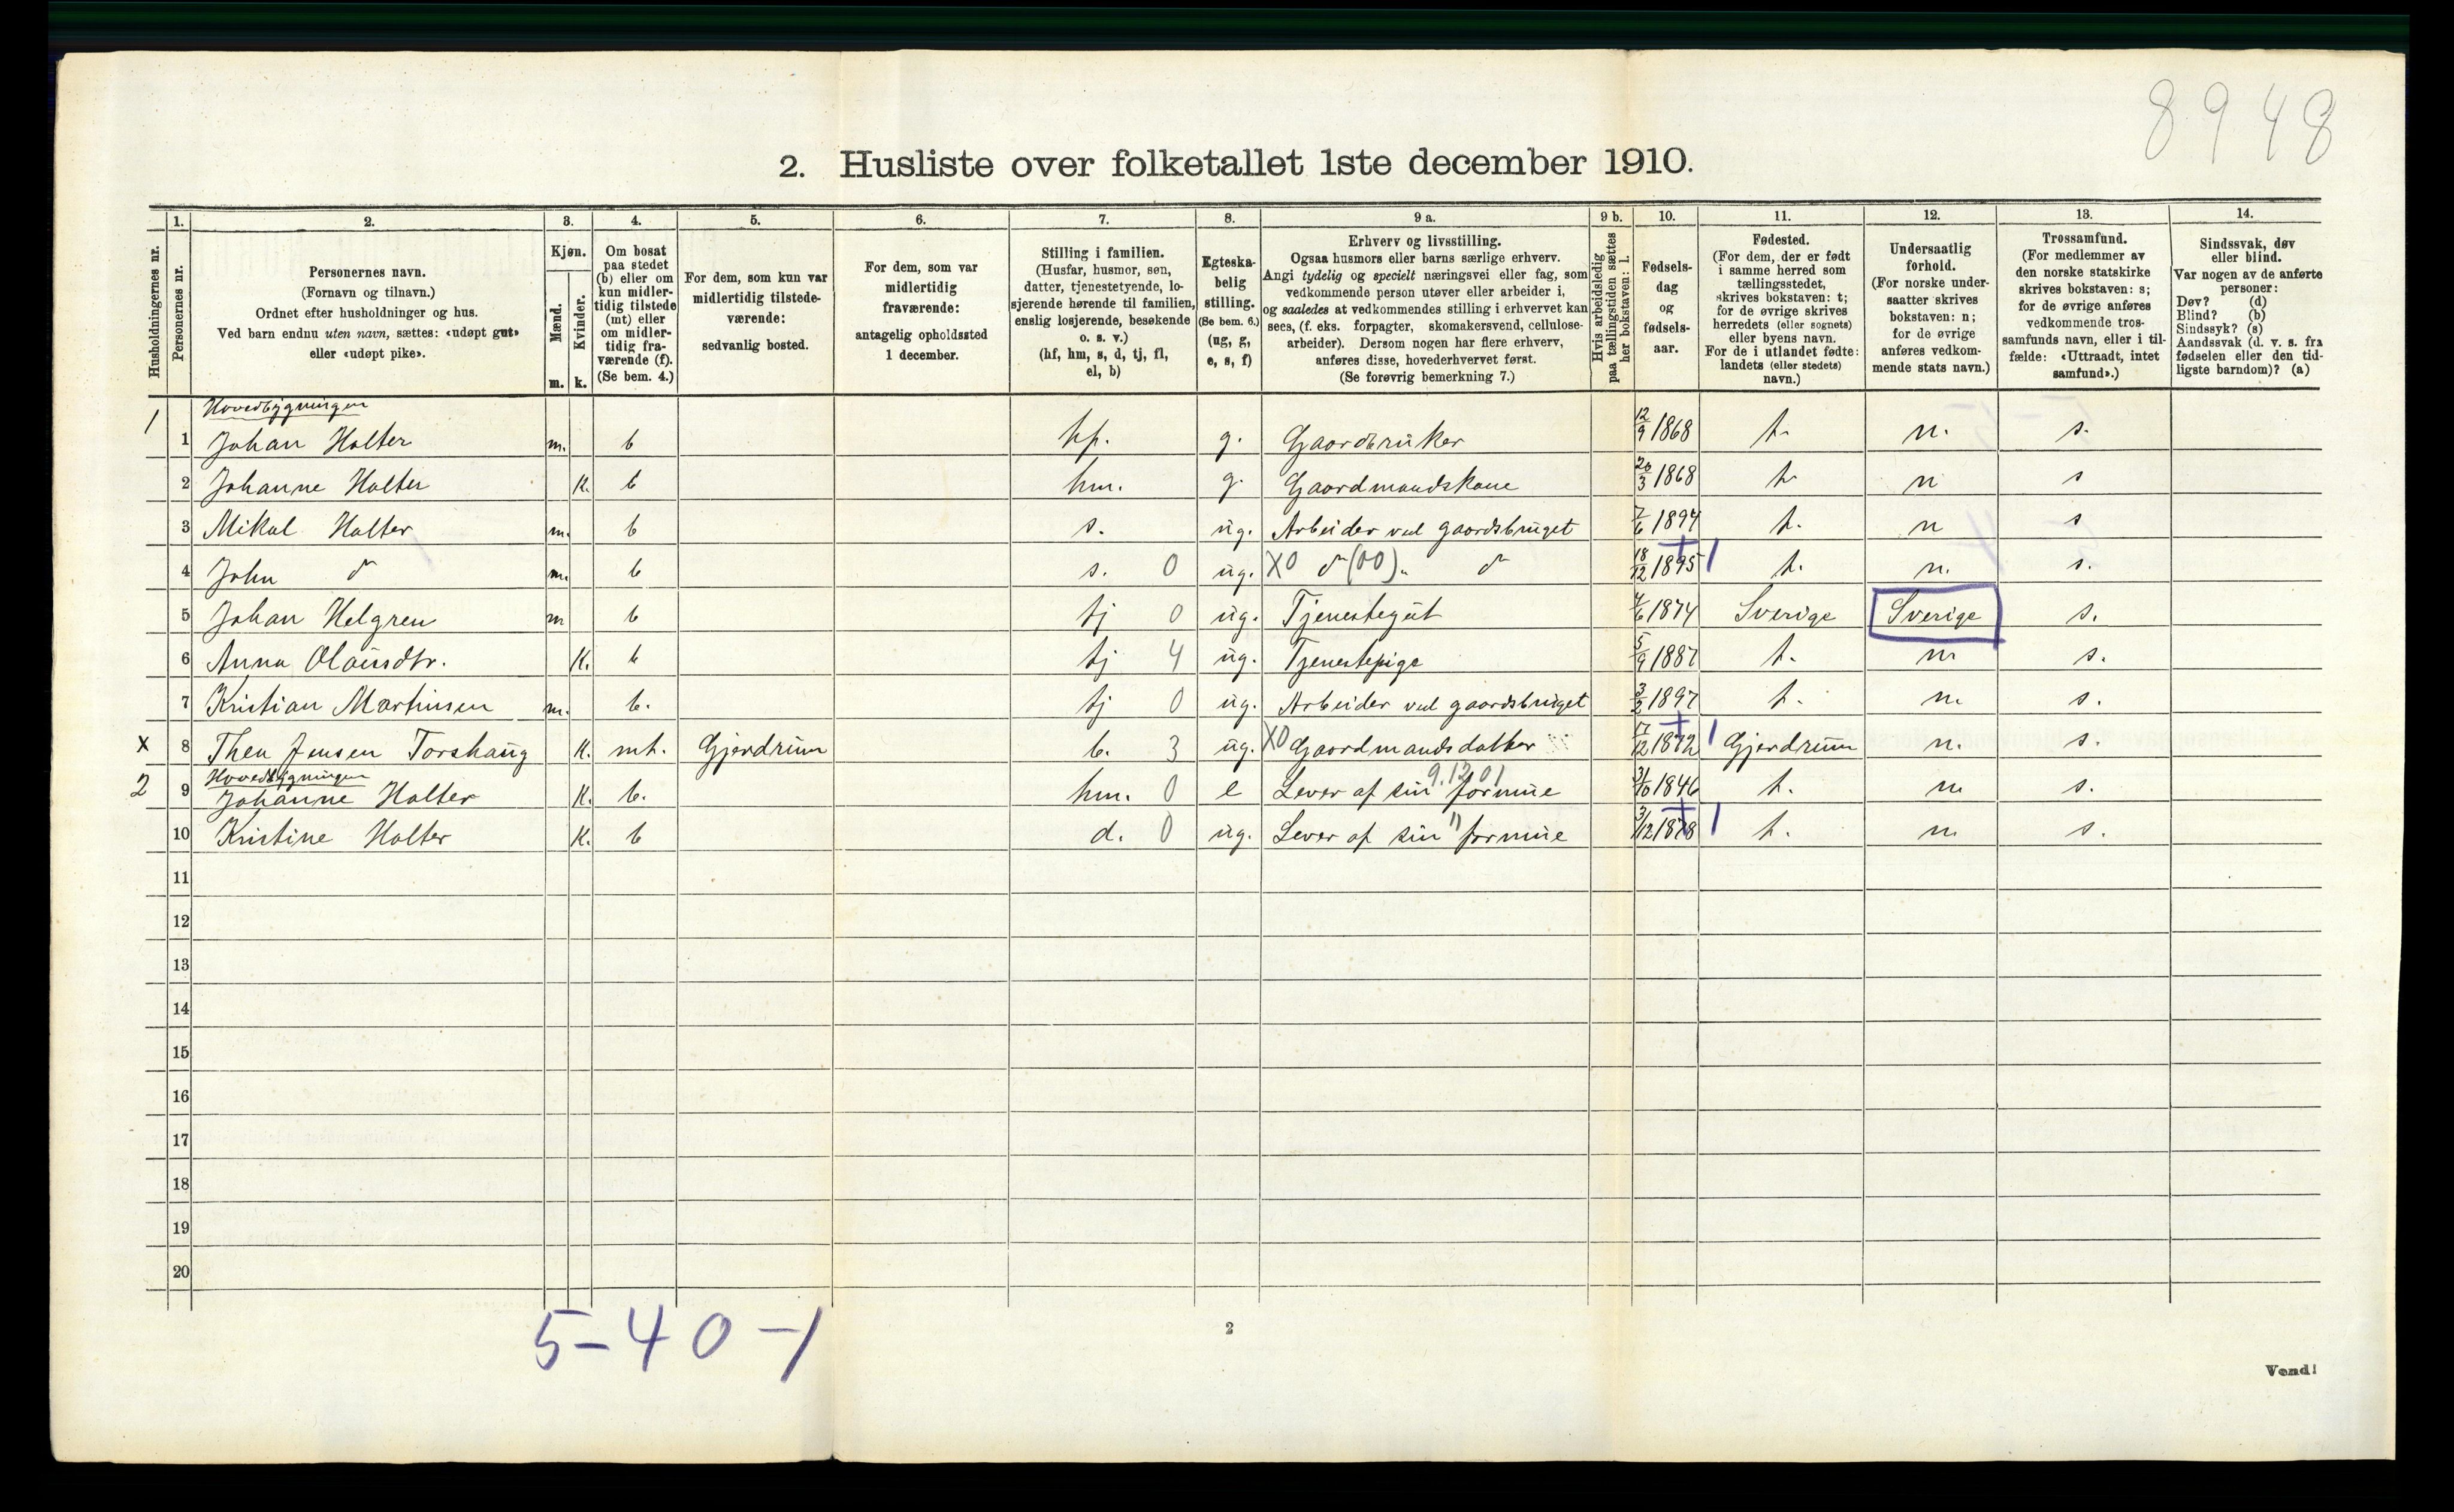 8948
2. Husliste over folketallet 1ste december 1910.
Husholdningernes nr.
1.
Personernes nr.
2.
Personernes navn.
(Fornavn og tilnavn.)
Ordnet efter husholdninger og hus.
Ved barn endnu uten navn, sættes: «udøpt gut»
eller «udøpt pike».
3.
Kjøn.
Mænd.
Kvinder.
m. k.
4.
Om bosat
paa stedet
(b) eller om
kun midler-
tidig tilstede
(mt) eller
om midler-
tidig fra-
værende (f).
(Se bem. 4.)
5.
For dem, som kun var
midlertidig tilstede-
værende:
sedvanlig bosted.
6.
For dem, som var
midlertidig
fraværende:
antagelig opholdssted
1 december.
7.
Stilling i familien.
(Husfar, husmor, søn,
datter, tjenestetyende, lo-
sjerende hørende til familien,
enslig losjerende, besøkende
o. s. v.)
(hf, hm, s, d, tj, fl,
el, b)
8.
Egteska-
belig
stilling.
(Se bem. 6.)
(ug, g,
e, s, f)
9 a.
Erhverv og livsstilling.
Ogsaa husmors eller barns særlige erhverv.
Angi tydelig og specielt næringsvei eller fag, som
vedkommende person utøver eller arbeider i,
og saaledes at vedkommendes stilling i erhvervet kan
sees, (f. eks. forpagter, skomakersvend, cellulose-
arbeider). Dersom nogen har flere erhverv,
anføres disse, hovederhvervet først.
(Se forøvrig bemerkning 7.)
9 b.
Hvis arbeidsledig
paa tællingstiden sættes
her bokstaven: l.
10.
Fødsels-
dag
og
fødsels-
aar.
11.
Fødested.
(For dem, der er født
i samme herred som
tællingsstedet,
skrives bokstaven: t;
for de øvrige skrives
herredets (eller sognets)
eller byens navn.
For de i utlandet fødte:
landets (eller stedets)
navn.)
12.
Undersaatlig
forhold.
(For norske under-
saatter skrives
bokstaven: n;
for de øvrige
anføres vedkom-
mende stats navn.)
13.
Trossamfund.
(For medlemmer av
den norske statskirke
skrives bokstaven: s;
for de øvrige anføres
vedkommende tros-
samfunds navn, eller i til-
fælde: «Uttraadt, intet
samfund».)
14.
Sindssvak, døv
eller blind.
Var nogen av de anførte
personer:
Døv? (d)
Blind? (b)
Sindssyk? (s)
Aandssvak (d. v. s. fra
fødselen eller den tid-
ligste barndom)? (a)
Hovedbygningen
1 1 Johan Holter m. b hf. g. Gaardbruker 12/9 1868 t. n. s.
2 Johanne Holter k. b hm. g. Gaardmandskone 20/3 1868 t. n s
3 Mikal Holter m. b s. ug. Arbeider ved gaardsbruget 7/6 1894 t. n s
4 John d° m. b s. 0 ug. X0 d° (00) " d° 18/12 1895 t. n. s.
5 Johan Helgren m b tj 0 ug. Tjenestegut 4/6 1874 Sverige Sverige s.
6 Anna Olausdtr. k. b tj 4 ug. Tjenestepige 5/9 1887 t. n. s.
7 Kristian Martinsen m. b. tj 0 ug. Arbeider ved gaardsbruget 3/2 1897 t. n. s.
X 8 Thea Jensen Torshaug k. mt. Gjerdrum b. 3 ug. X0 Gaardmandsdatter 17/12 1892 Gjerdrum n. s.
Hovedbygningen
2 9 Johanne Holter k. b. hm. 0 e Lever af sin formue 9.12 01 31/10 1846 t. n. s.
10 Kristine Holter k. b d. 0 ug. Lever af sin " formue 3/12 1878 t. n. s.
11
12
13
14
15
16
17
18
19
20
5-40-1
2
Vend!